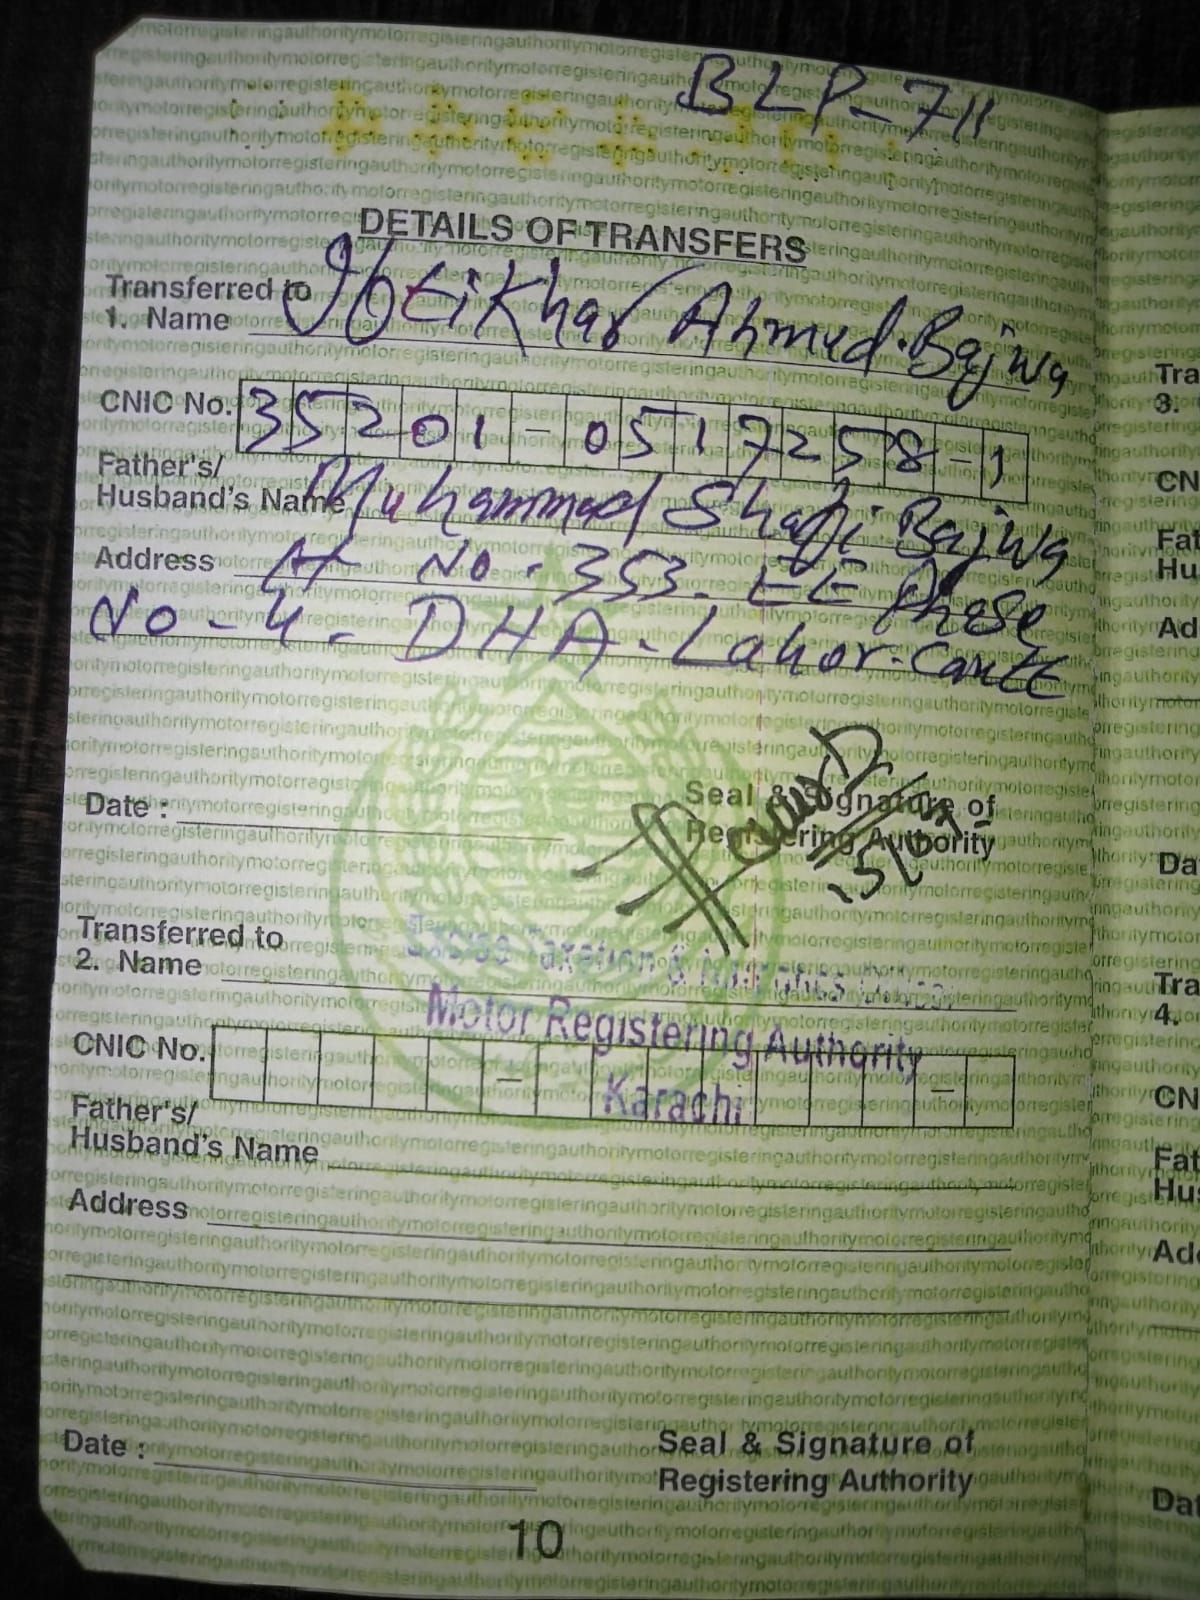 BLP-711
DETAILS OF TRANSFERS
Transferred to
1. Name Iftikhar Ahmed. Bajwa
CNIC No. 35201-0517258-1
Father's/
Husband's Name Muhammad Shafi Bajwa
Address H No. 353. EE Phase
No-4. DHA-Lahor-Cantt
Seal & Signature of
Registering Authority
Date :
Transferred to
2. Name
Excise Taxation & Narcotics
Motor Registering Authority
Karachi
CNIC No. - -
Father's/
Husband's Name
Address
Date :
Seal & Signature of
Registering Authority
10
Tra
3.
CN
Fat
Hu
Ad
Da
Tra
4.
CN
Fat
Hu
Ad
Dat